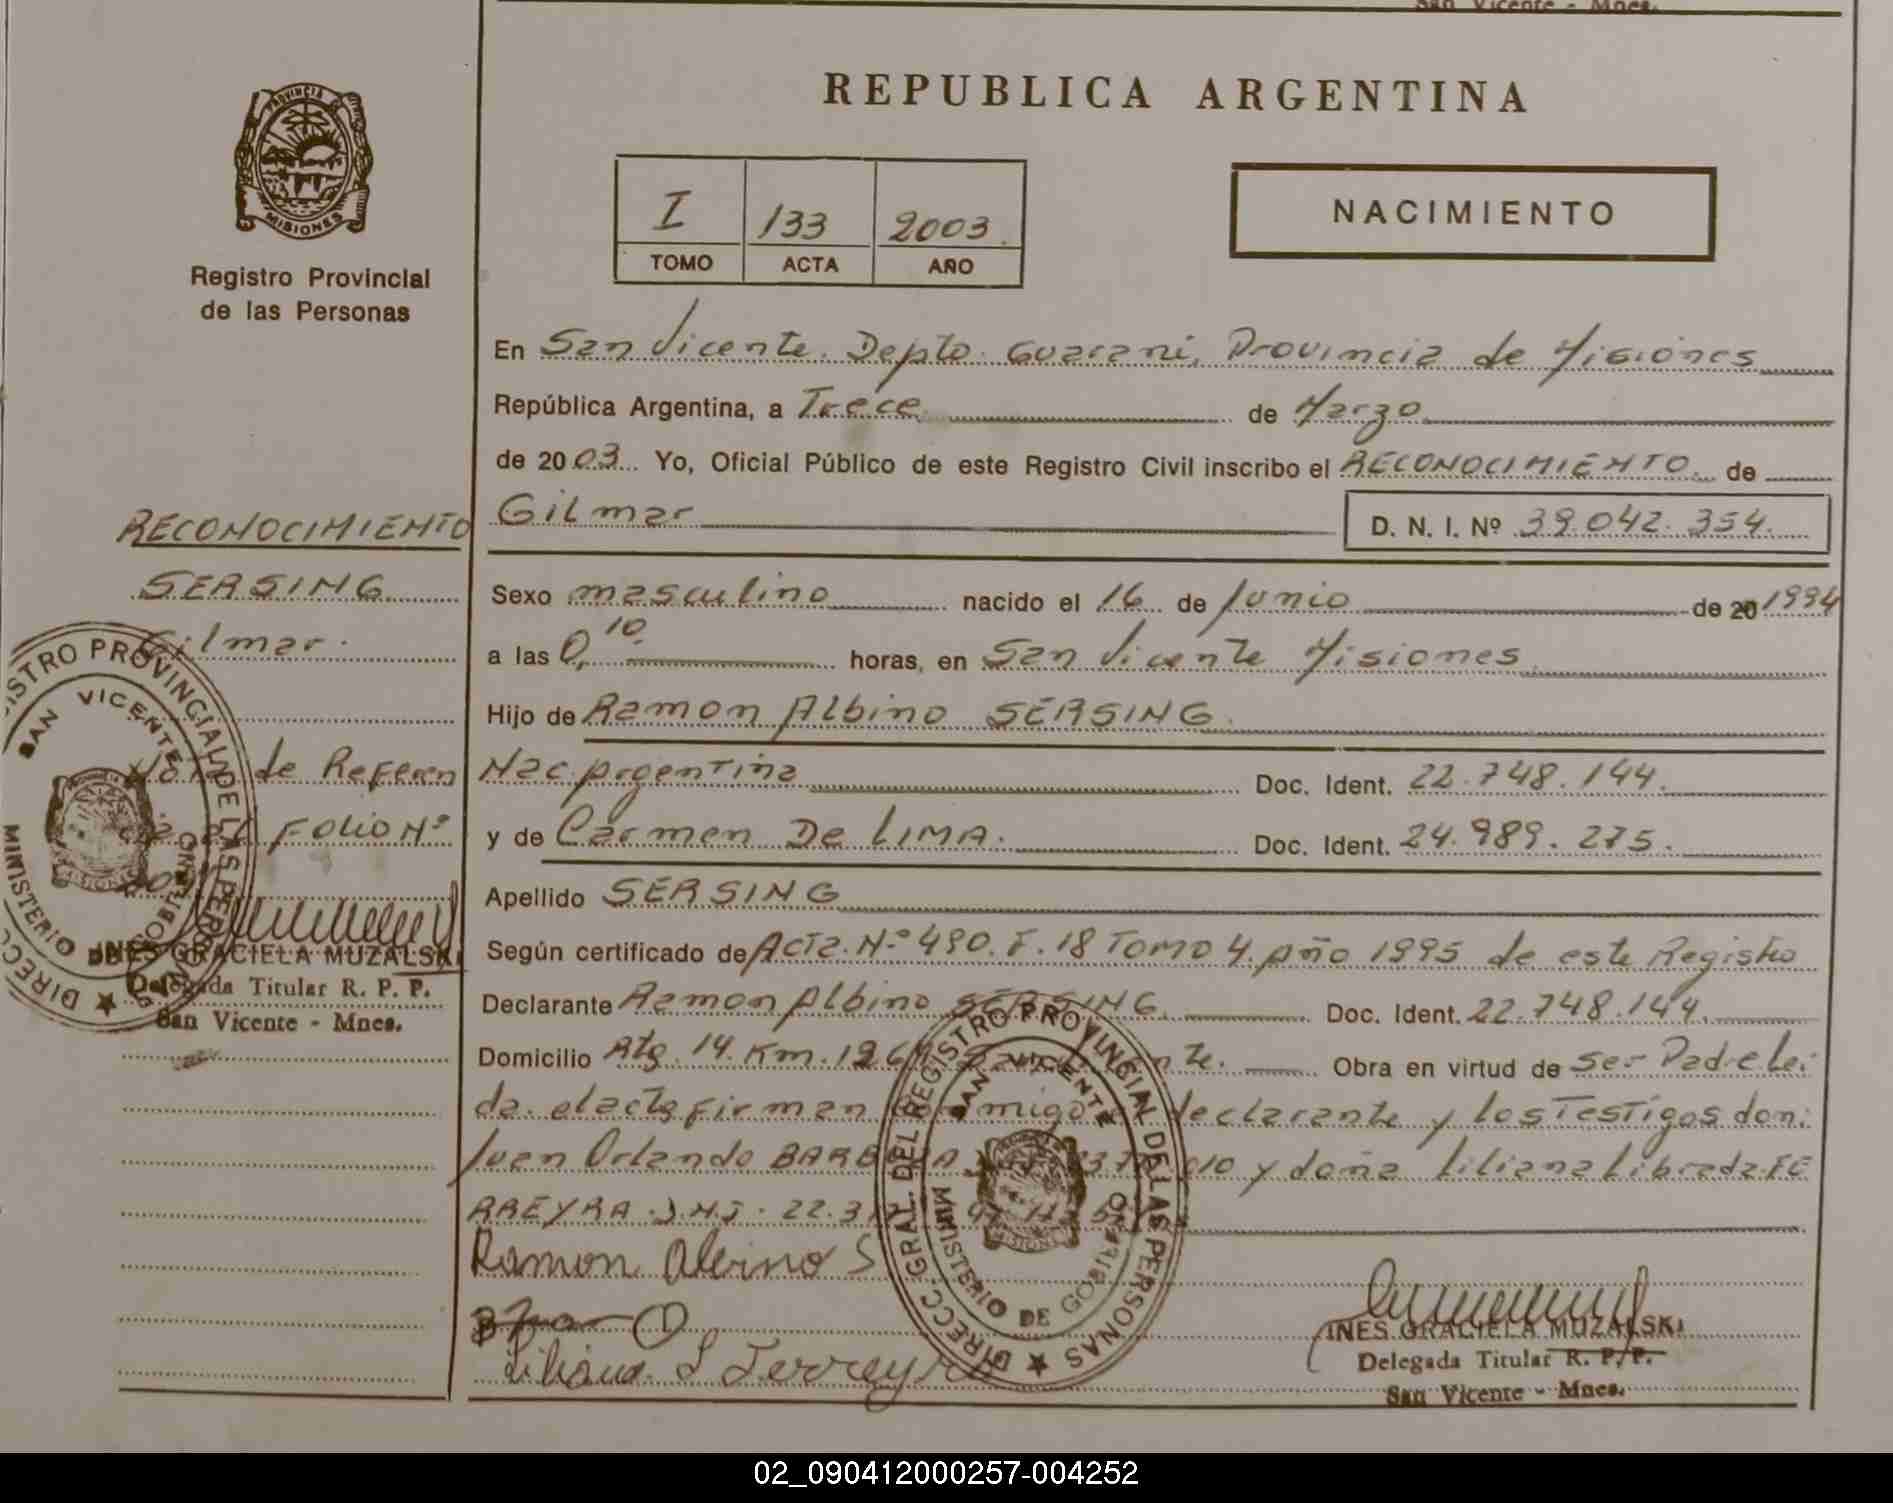 San Vicente - Mnes.
REPUBLICA ARGENTINA
PROVINCIA DE
MISIONES
Registro Provincial
de las Personas
I 133 2003
TOMO ACTA AÑO
NACIMIENTO
En San Vicente. Depto. Guarani, Provincia de Misiones
República Argentina, a Trece de Marzo
de 2003 Yo, Oficial Público de este Registro Civil inscribo el RECONOCIMIENTO de
Gilmar D. N. I. Nº 39.042.354.
Sexo masculino nacido el 16 de Junio de 20 1994
a las 0,10 horas, en San Vicente Misiones
Hijo de Ramon Albino SERSING
Nac. Argentina Doc. Ident. 22.748.144.
y de Carmen De LIMA. Doc. Ident. 24.989.275.
Apellido SERSING
Según certificado de Acta. N.º 490. F. 18 TOMO 4. Año 1995 de este Registro
Declarante Ramon Albino SERSING Doc. Ident. 22.748.144.
Domicilio Rta. 14. Km. Obra en virtud de ser Padre Lei
da. el acta firman conmigo el declarante y los Testigos don:
Juan Orlando y doña Liliana Librada FE
RREYRA. D.N.I. 22.
Ramon Albino S
Liliana L Ferreyra
INES GRACIELA MUZALSKI
Delegada Titular R. P. P.
San Vicente - Mnes.
DIRECC. GRAL. DEL REGISTRO PROVINCIAL DE LAS PERSONAS
SAN VICENTE
MINISTERIO DE GOBIERNO
MISIONES
RECONOCIMIENTO
SERSING
Gilmar.
Nota de Referen
FOLIO Nº
INES GRACIELA MUZALSKI
Delegada Titular R. P. P.
San Vicente - Mnes.
REGISTRO PROVINCIAL DE LAS PERSONAS
SAN VICENTE
MINISTERIO DE GOBIERNO
DIRECC
02_090412000257-004252